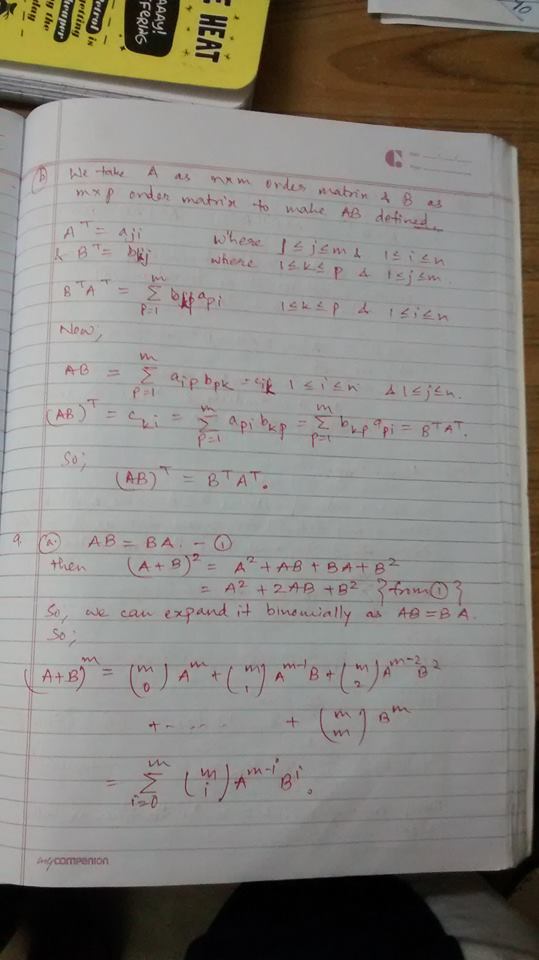 E HEAT
AAAY!
FFERING
ferral is
etting
the
10
C
(b) We take A as n×m order matrix & B as
m×p order matrix to make AB defined.
A^T = a_ji where 1 ≤ j ≤ m & 1 ≤ i ≤ n
& B^T = b_kj where 1 ≤ k ≤ p & 1 ≤ j ≤ m.
B^T A^T = Σ_{p=1}^{m} b_kp a_pi 1 ≤ k ≤ p & 1 ≤ i ≤ n
Now,
AB = Σ_{p=1}^{m} a_ip b_pk = c_ik 1 ≤ i ≤ n & 1 ≤ j ≤ n.
(AB)^T = c_ki = Σ_{p=1}^{m} a_pi b_kp = Σ_{p=1}^{m} b_kp a_pi = B^T A^T.
So;
(AB)^T = B^T A^T.
9. (a.) AB = BA. — ①
then (A+B)^2 = A^2 + AB + BA + B^2
= A^2 + 2AB + B^2 } from ① }
So, we can expand it binomially as AB = BA.
So;
(A+B)^m = (m 0) A^m + (m 1) A^{m-1} B + (m 2) A^{m-2} B^2
+ - .... + (m m) B^m
= Σ_{i=0}^{m} (m i) A^{m-i} B^i.
mycompanion